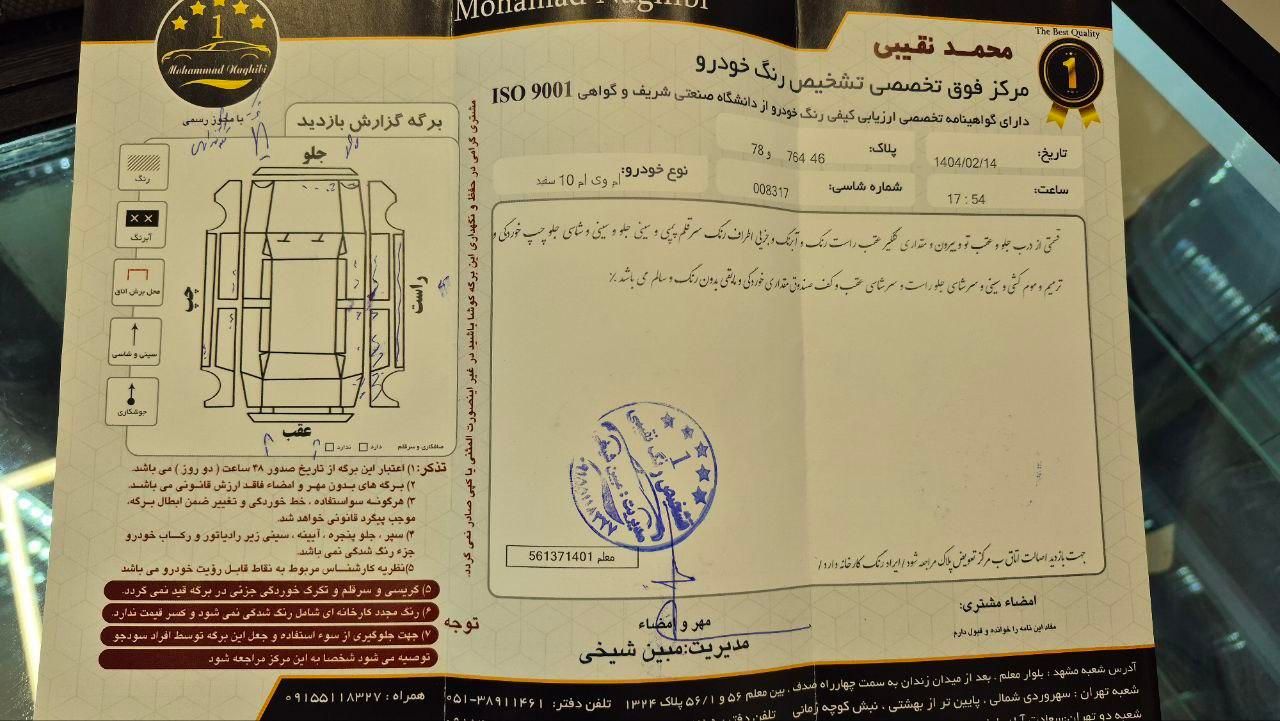 Mohamad Naghibi
1
Mohammad Naghibi
The Best Quality
1
محمـد نقیبی
مرکز فوق تخصصی تشخیص رنگ خودرو
دارای گواهینامه تخصصی ارزیابی کیفی رنگ خودرو از دانشگاه صنعتی شریف و گواهی ISO 9001
تاریخ: 1404/02/14
پلاک: 46 764 و 78
ساعت: 17 : 54
شماره شاسی: 008317
نوع خودرو: ام وی ام 10 سفید
قسمتی از درب جلو و عقب تو و بیرون و مقداری گلگیر عقب راست رنگ و آبرنگ و جزیی اطراف رنگ سرقلم پییی و سینی جلو و سینی و شاسی جلو چپ خوردگی و
ترمیم و موم کشی و سینی و سر شاسی جلو راست و سر شاسی عقب و کف صندوق مقداری خوردگی و مابقی بدون رنگ و سالم می باشد ٪
جهت بازدید اصالت اتاق ب مرکز تعویض پلاک مراجعه شود / ایراد رنگ کارخانه دارد /
معلم 561371401
تشخیص رنگ نقیبی
1
مدیریت : مبین شیخی
امضاء مشتری:
مفاد این نامه را خوانده و قبول دارم
مهر و امضاء
مدیریت:مبین شیخی
مشتری گرامی در حفظ و نگهداری این برگه کوشا باشید در غیر اینصورت المثنی یا کپی صادر نمی گردد.
با مجوز رسمی
برگه گزارش بازدید
جلو
رنگ
آبرنگ
محل برش اتاق
سینی و شاسی
جوشکاری
چپ
راست
عقب
صافکاری و سرقلم دارد ندارد
تذکر: ۱) اعتبار این برگه از تاریخ صدور ۴۸ ساعت ( دو روز ) می باشد.
۲) برگه های بدون مهر و امضاء فاقد ارزش قانونی می باشد.
۳) هرگونه سواستفاده ، خط خوردگی و تغییر ضمن ابطال برگه،
موجب پیگرد قانونی خواهد شد.
۴) سپر ، جلو پنجره ، آیینه ، سینی زیر رادیاتور و رکاب خودرو
جزء رنگ شدگی نمی باشد.
۵)نظریه کارشناس مربوط به نقاط قابل رؤیت خودرو می باشد
۵) گریسی و سرقلم و تکرک خوردگی جزئی در برگه قید نمی گردد.
۶) رنگ مجدد کارخانه ای شامل رنگ شدگی نمی شود و کسر قیمت ندارد.
توجه
۷) جهت جلوگیری از سوء استفاده و جعل این برگه توسط افراد سودجو
توصیه می شود شخصا به این مرکز مراجعه شود
آدرس شعبه مشهد : بلوار معلم . بعد از میدان زندان به سمت چهارراه صدف . بین معلم ۵۶ و ۵۶/۱ پلاک ۱۳۲۴ تلفن دفتر: ۳۸۹۱۱۴۶۱-۰۵۱ همراه : ۰۹۱۵۵۱۱۸۳۲۷
شعبه تهران : سهروردی شمالی . پایین تر از بهشتی ، نبش کوچه زمانی تلفن دفتر
شعبه دو تهران:سعادت آباد